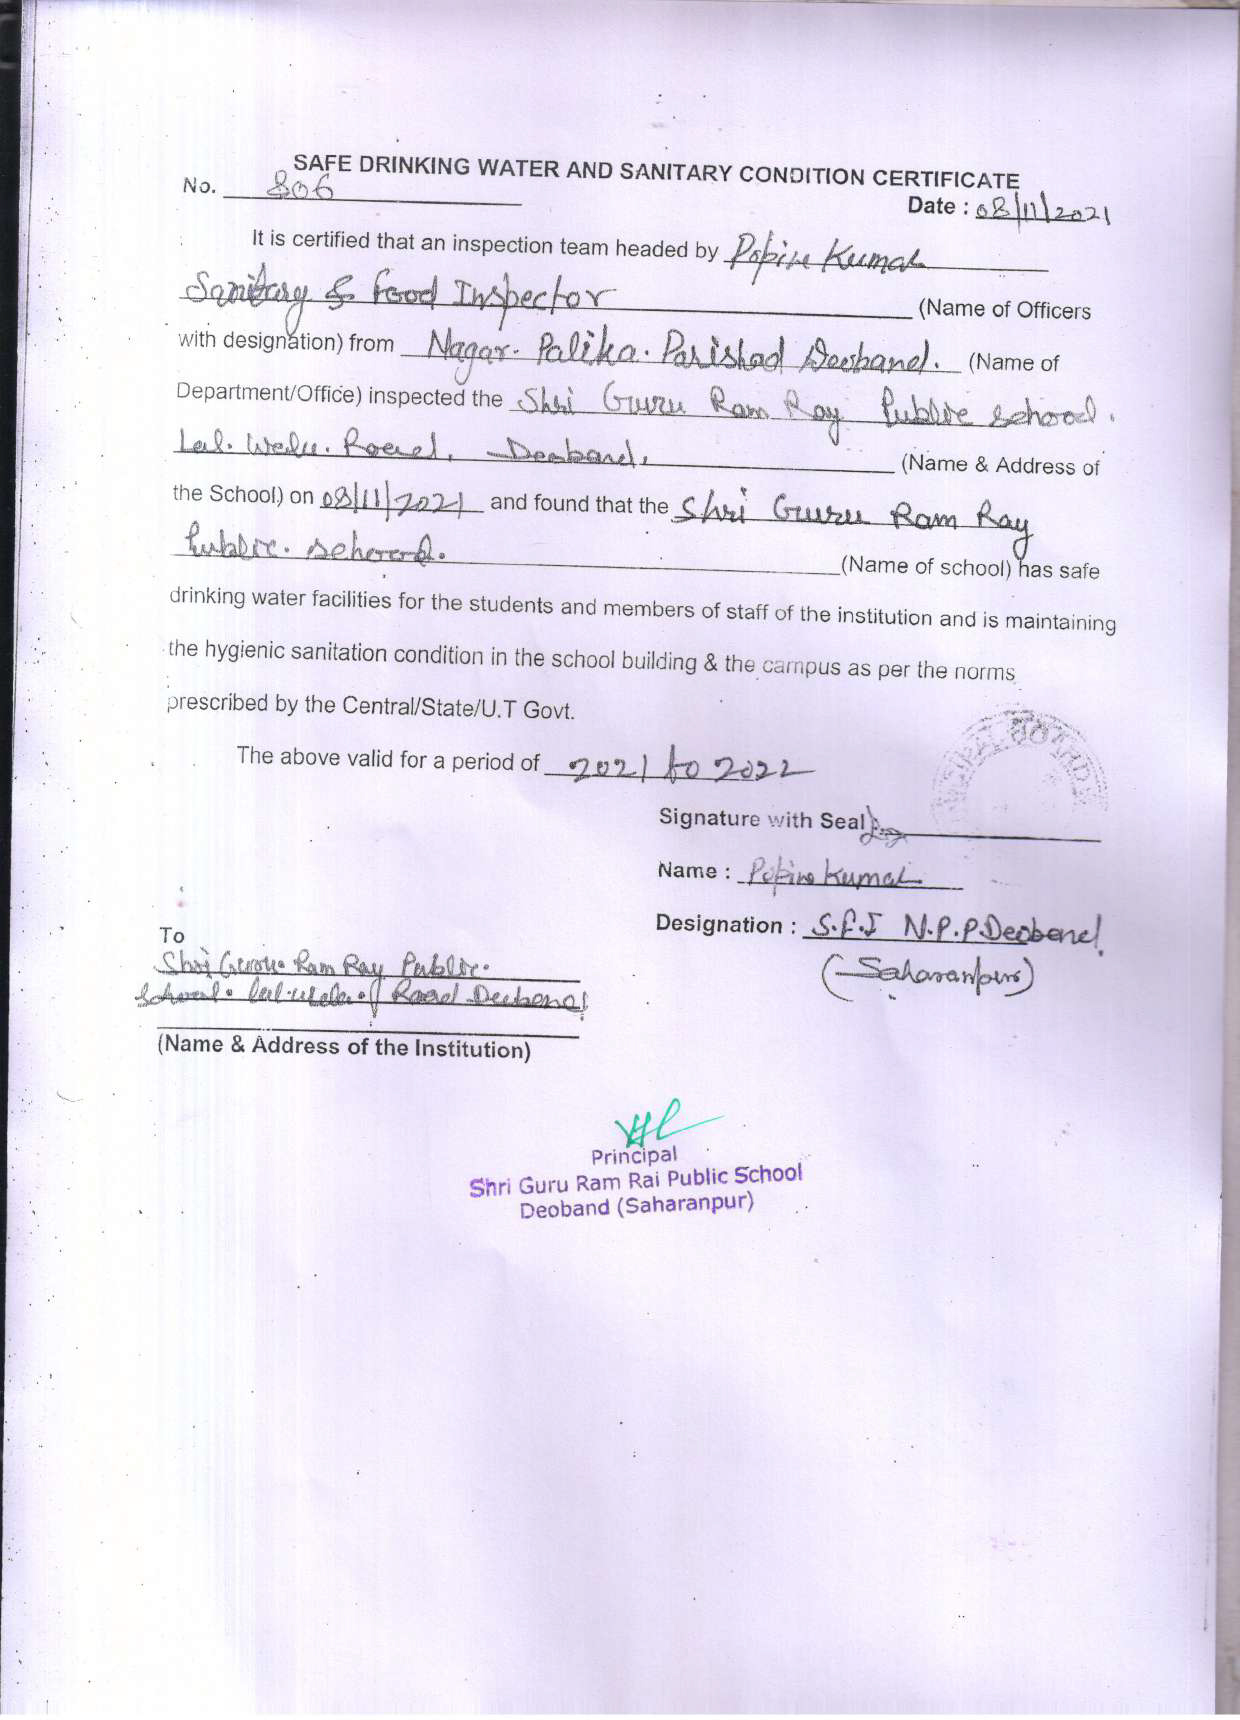 SAFE DRINKING WATER AND SANITARY CONDITION CERTIFICATE
No. 806
Date : 08/11/2021
It is certified that an inspection team headed by Popin Kumar
Sanitary & Food Inspector (Name of Officers
with designation) from Nagar. Palika. Parishad Deoband. (Name of
Department/Office) inspected the Shri Guru Ram Ray Public school.
Lal. Road, Deoband. (Name & Address of
the School) on 08/11/2021 and found that the Shri Guru Ram Ray
Public. school. (Name of school) has safe
drinking water facilities for the students and members of staff of the institution and is maintaining
the hygienic sanitation condition in the school building & the campus as per the norms
prescribed by the Central/State/U.T Govt.
The above valid for a period of 2021 to 2022
Signature with Seal
Name : Popin Kumar
Designation : S.F.I N.P.P. Deoband
(Saharanpur)
To
Shri Guru Ram Ray Public.
School. Lal Road Deoband
(Name & Address of the Institution)
Principal
Shri Guru Ram Rai Public School
Deoband (Saharanpur)